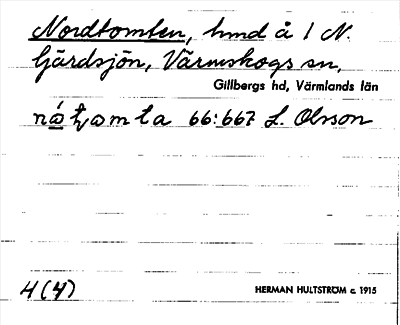 Nordtomten, hmd å 1 N.
Gärdsjön, Värmskogs sn,
Gillbergs hd, Värmlands län
66:667 L. Olsson
4(4)
HERMAN HULTSTRÖM c. 1915